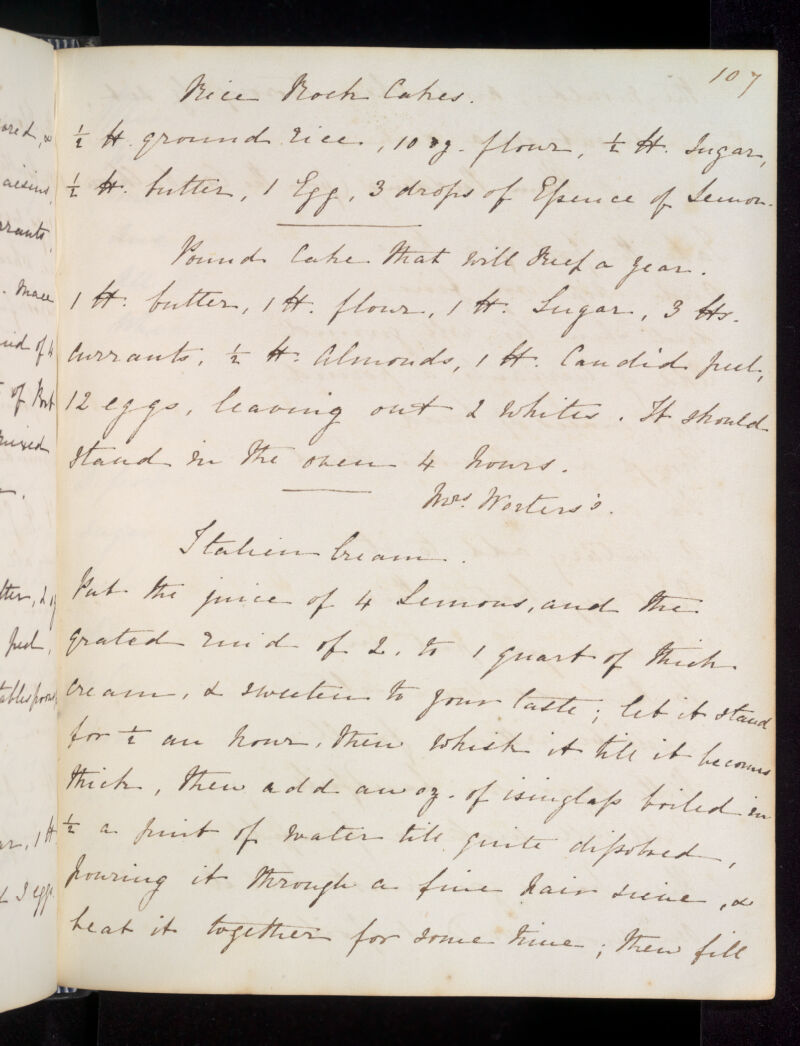 ored, &
aisins,
rrants,
. Mace
ind of 4
of Port
mixed
tter, 2 oz
peel,
tablespoons
ar, 1 ℔
3 eggs
107
Rice Rock Cakes.
½ ℔. ground rice, 10 oz. flour, ½ ℔. Sugar,
½ ℔. butter, 1 Egg, 3 drops of Eſsence of Lemon.
Pound Cake that will keep a year.
1 ℔. butter, 1 ℔. flour, 1 ℔. Sugar, 3 ℔s.
Currants, ½ ℔. Almonds, 1 ℔. Candid peel,
12 eggs, leaving out 2 whites. It should
stand in the oven 4 hours.
Mrs. Worters's.
Italien Cream.
Put the juice of 4 Lemons, and the
grated rind of 2, to 1 quart of thick
cream, & sweeten to your taste; let it stand
for ½ an hour, then whisk it till it becomes
thick, then add an oz. of isinglaſs boiled in
½ a pint of water till quite diſsolved,
pouring it through a fine hair sieve, &
beat it together for some time; then fill